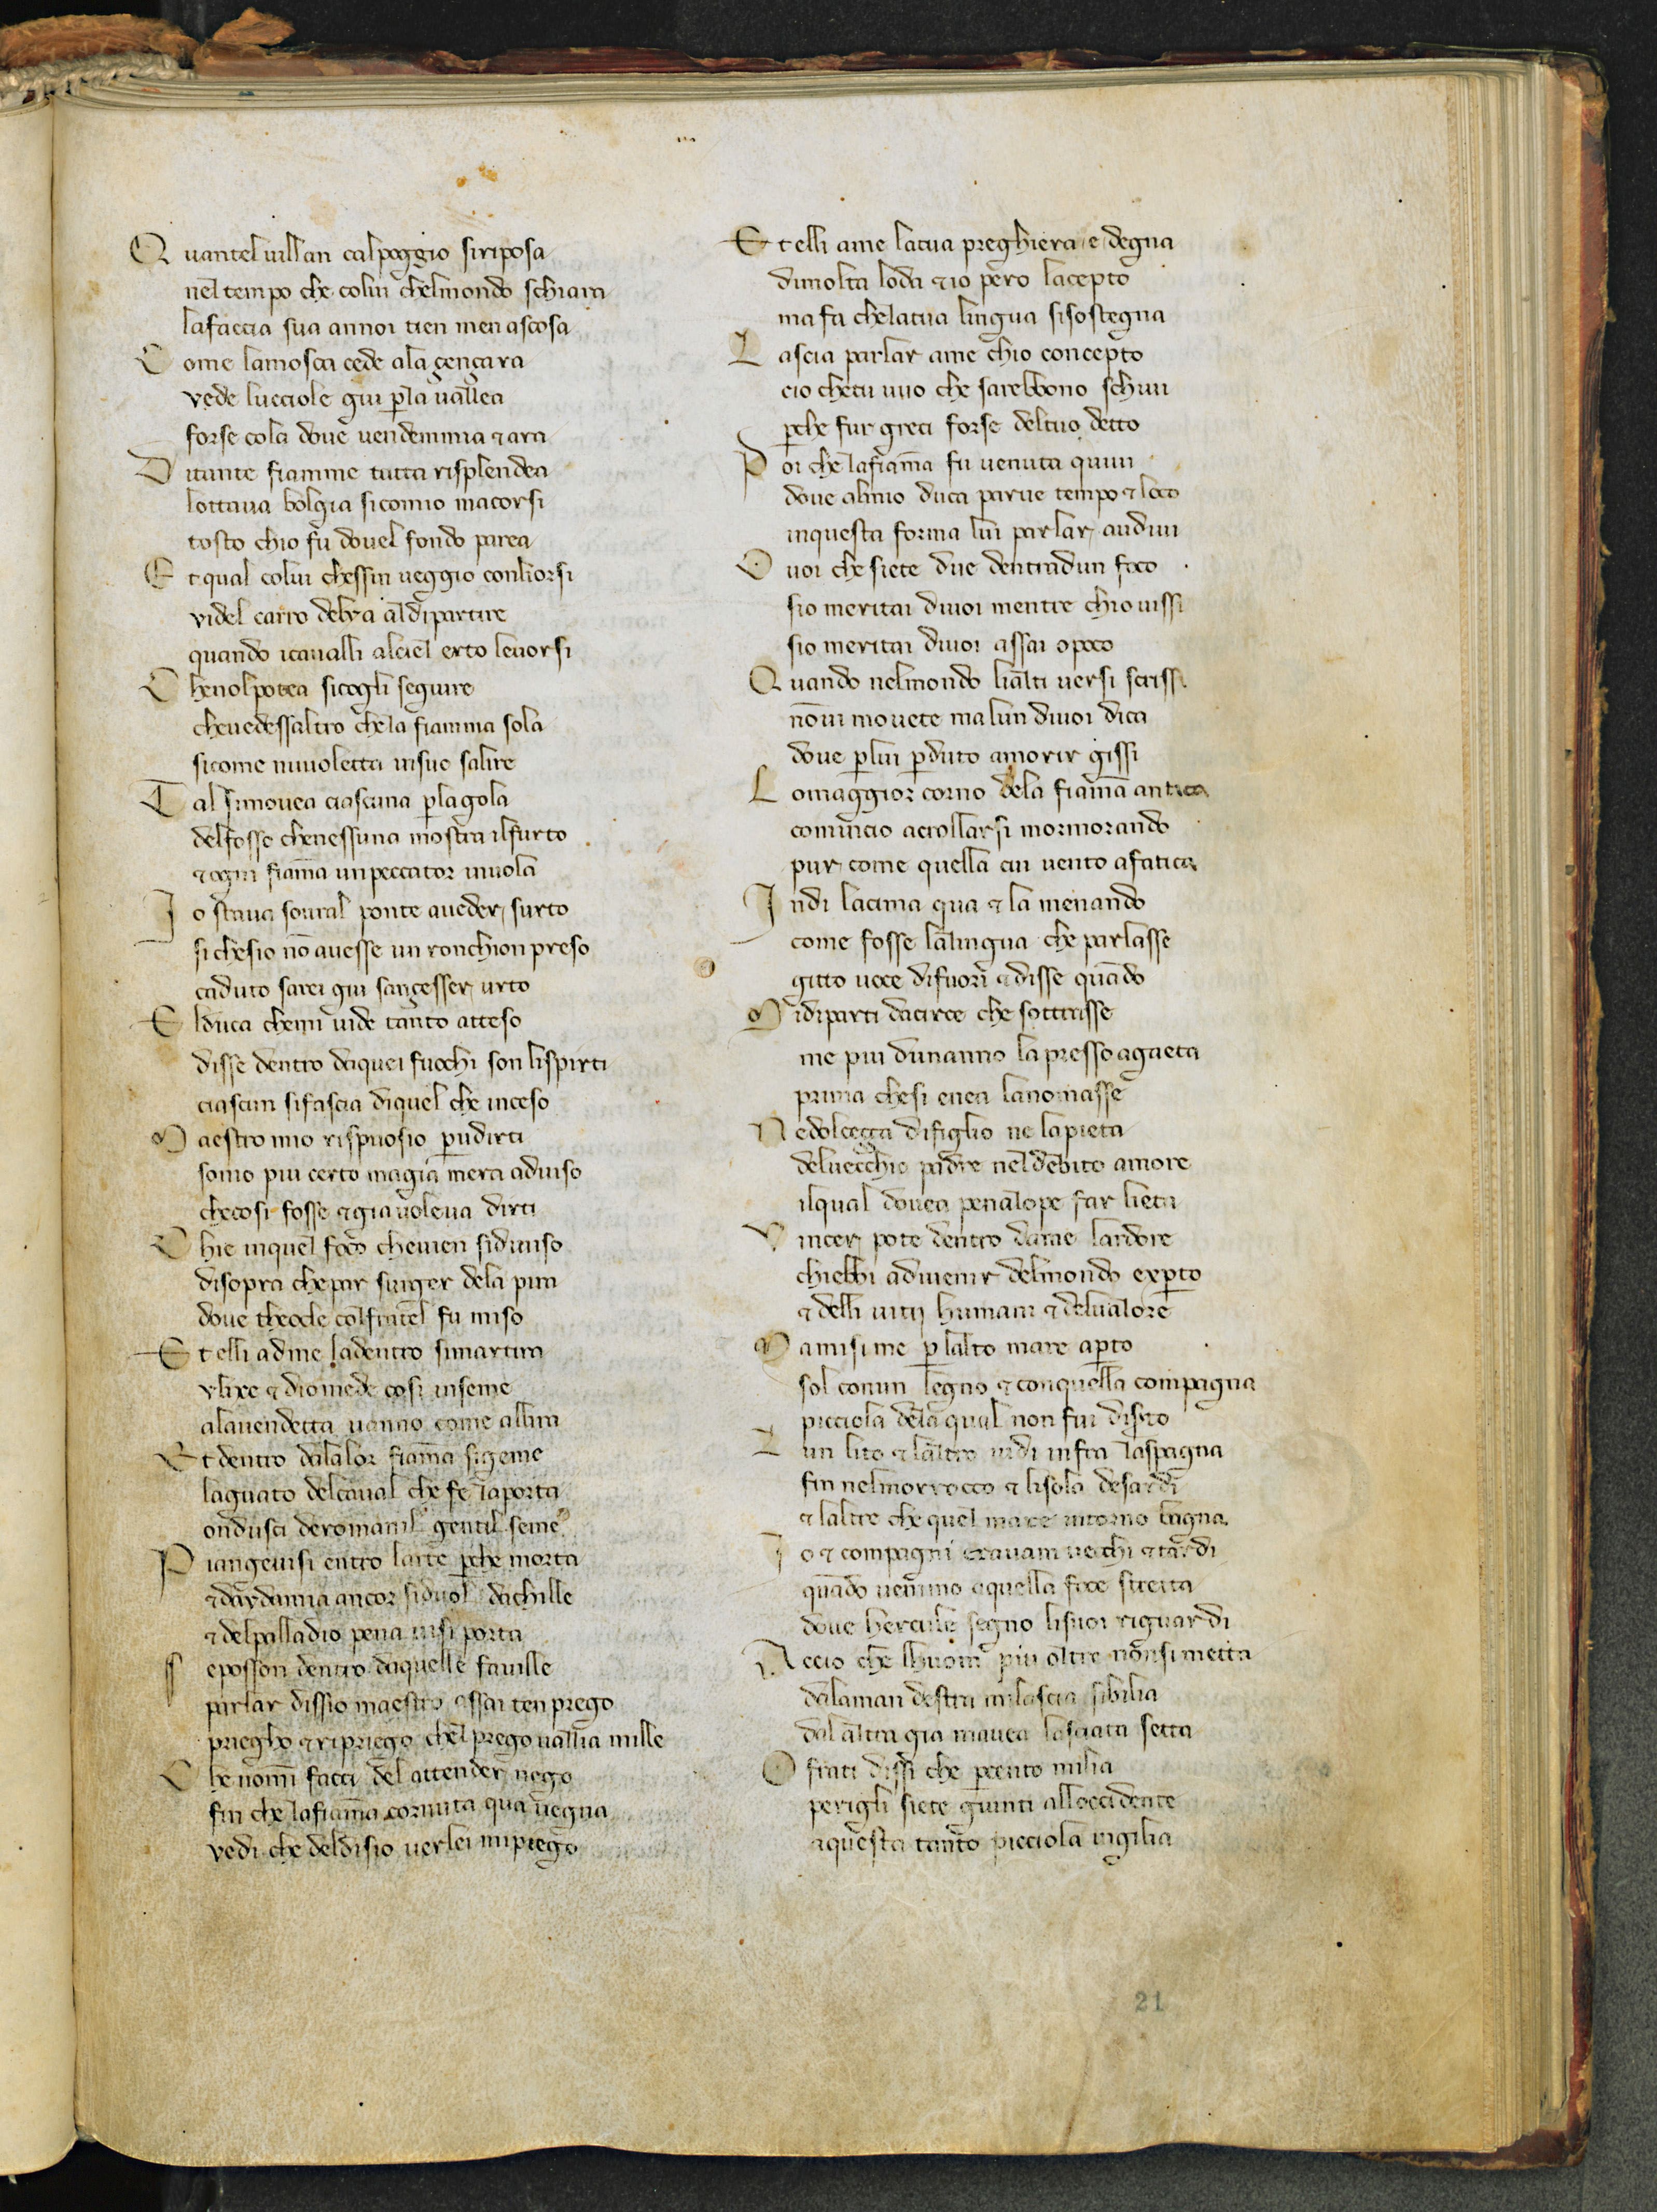 Quantel uillan calpoggio siriposa
nel tempo che colui chelmondo schiara
lafaccia sua annoi tien men ascosa
Come lamosca cede ala gençara
vede lucciole giu p̄la uallea
forse cola doue uendemmia ⁊ ara
Ditante fiamme tutta risplendea
lottaua bolgia sicomio macorsi
tosto chio fu douel fondo parea
Et qual colui chessin ueggio conliorsi
videl carro delya aldipartire
quando icaualli alciel erto leuorsi
Chenolpotea sicogli seguire
cheuedessaltro che la fiamma sola
sicome nuuoletta insue salire
Tal simouea ciascuna p̄lagola
delfosso chenessuna mostra ilfurto
⁊ ogni fiam̄a unpeccator inuola
Io staua soural ponte aueder surto
si chesio nō auesse un ronchion preso
caduto sarei giu sançesser urto
Elduca chemi uide tanto atteso
disse dentro daquei fuochi son lispirti
ciascun sifascia diquel che inceso
Maestro mio rispuosio p̄udirti
sonio piu certo magia mera aduiso
checosi fosse ⁊ gia uoleua dirti
Chie inquel foco cheuien sidiuiso
disopra chepar surger dela pira
doue theocle colfratel fu miso
Et elli adme ladentro simartira
vlixe ⁊ diomede cosi inseme
alauendetta uanno come allira
Et dentro dalalor fiam̄a sigeme
laguato delcaual che fe laporta
ondusci deromani gentil seme
Piangeuisi entro larte p̄che morta
⁊ daydamia ancor siduol dachille
⁊ delpalladio pena uisi porta
Seposson dentro daquelle fauille
parlar dissio maestro assai ten prego
priegho ⁊ ripriego chel prego uallia mille
Che nom̄i facci del attender nego
fin che lafiam̄a cornuta qua uegna
vedi che deldisio uerlei mipiego
Et elli ame latua preghiera e degna
dimolta loda ⁊ io pero lacepto
ma fa chelatua lingua sisostegna
Lascia parlar ame chio concepto
cio chetu uuo che sarebbono schiui
p̄che fur greci forse deltuo detto
Poi che lafiam̄a fu uenuta quiui
doue almio duca parue tempo ⁊ loco
inquesta forma lui parlar audiui
O uoi che siete due dentradun foco
sio meritai diuoi mentre chio uissi
sio meritai diuoi assai o poco
Quando nelmondo lialti uersi scrissi
nō ui mouete ma lun diuoi dica
doue p̄lui p̄duto amorir gissi
Lomaggior corno dela fiam̄a antica
comincio acrollarsi mormorando
pur come quella cui uento afatica
Indi lacima qua ⁊ la menando
come fosse lalingua che parlasse
gitto uoce difuori ⁊ disse quādo
Midiparti dacirce che sottrasse
me piu dunanno la presso agaeta
prima chesi enea lanomasse
Nedolceçça difiglio ne lapieta
deluecchio padre neldebito amore
ilqual douea penalope far lieta
Vincer pote dentro dame lardore
chiebbi adiuenir delmondo exp̄to
⁊ delli uitij humani ⁊ delualore
Mamisi me p̄ lalto mare ap̄to
sol conun legno ⁊ conquella compagna
picciola dela qual non fui diserto
Lun lito ⁊ laltro uidi infra laspagna
fin nelmorrocco ⁊ lisola desardi
⁊ laltre che quel mare intorno bagna
Io ⁊ compagni erauam uecchi ⁊ tardi
quādo uenimmo aquella foce stretta
doue hercule segno lisuoi riguardi
Accio che lhuom piu oltre nōnsi metta
dalaman destra milascia sibilia
dal altra gia mauea lasciata setta
O frati dissi che p̄cento milia
perigli siete giunti alloccidente
aquesta tanto picciola uigilia
21